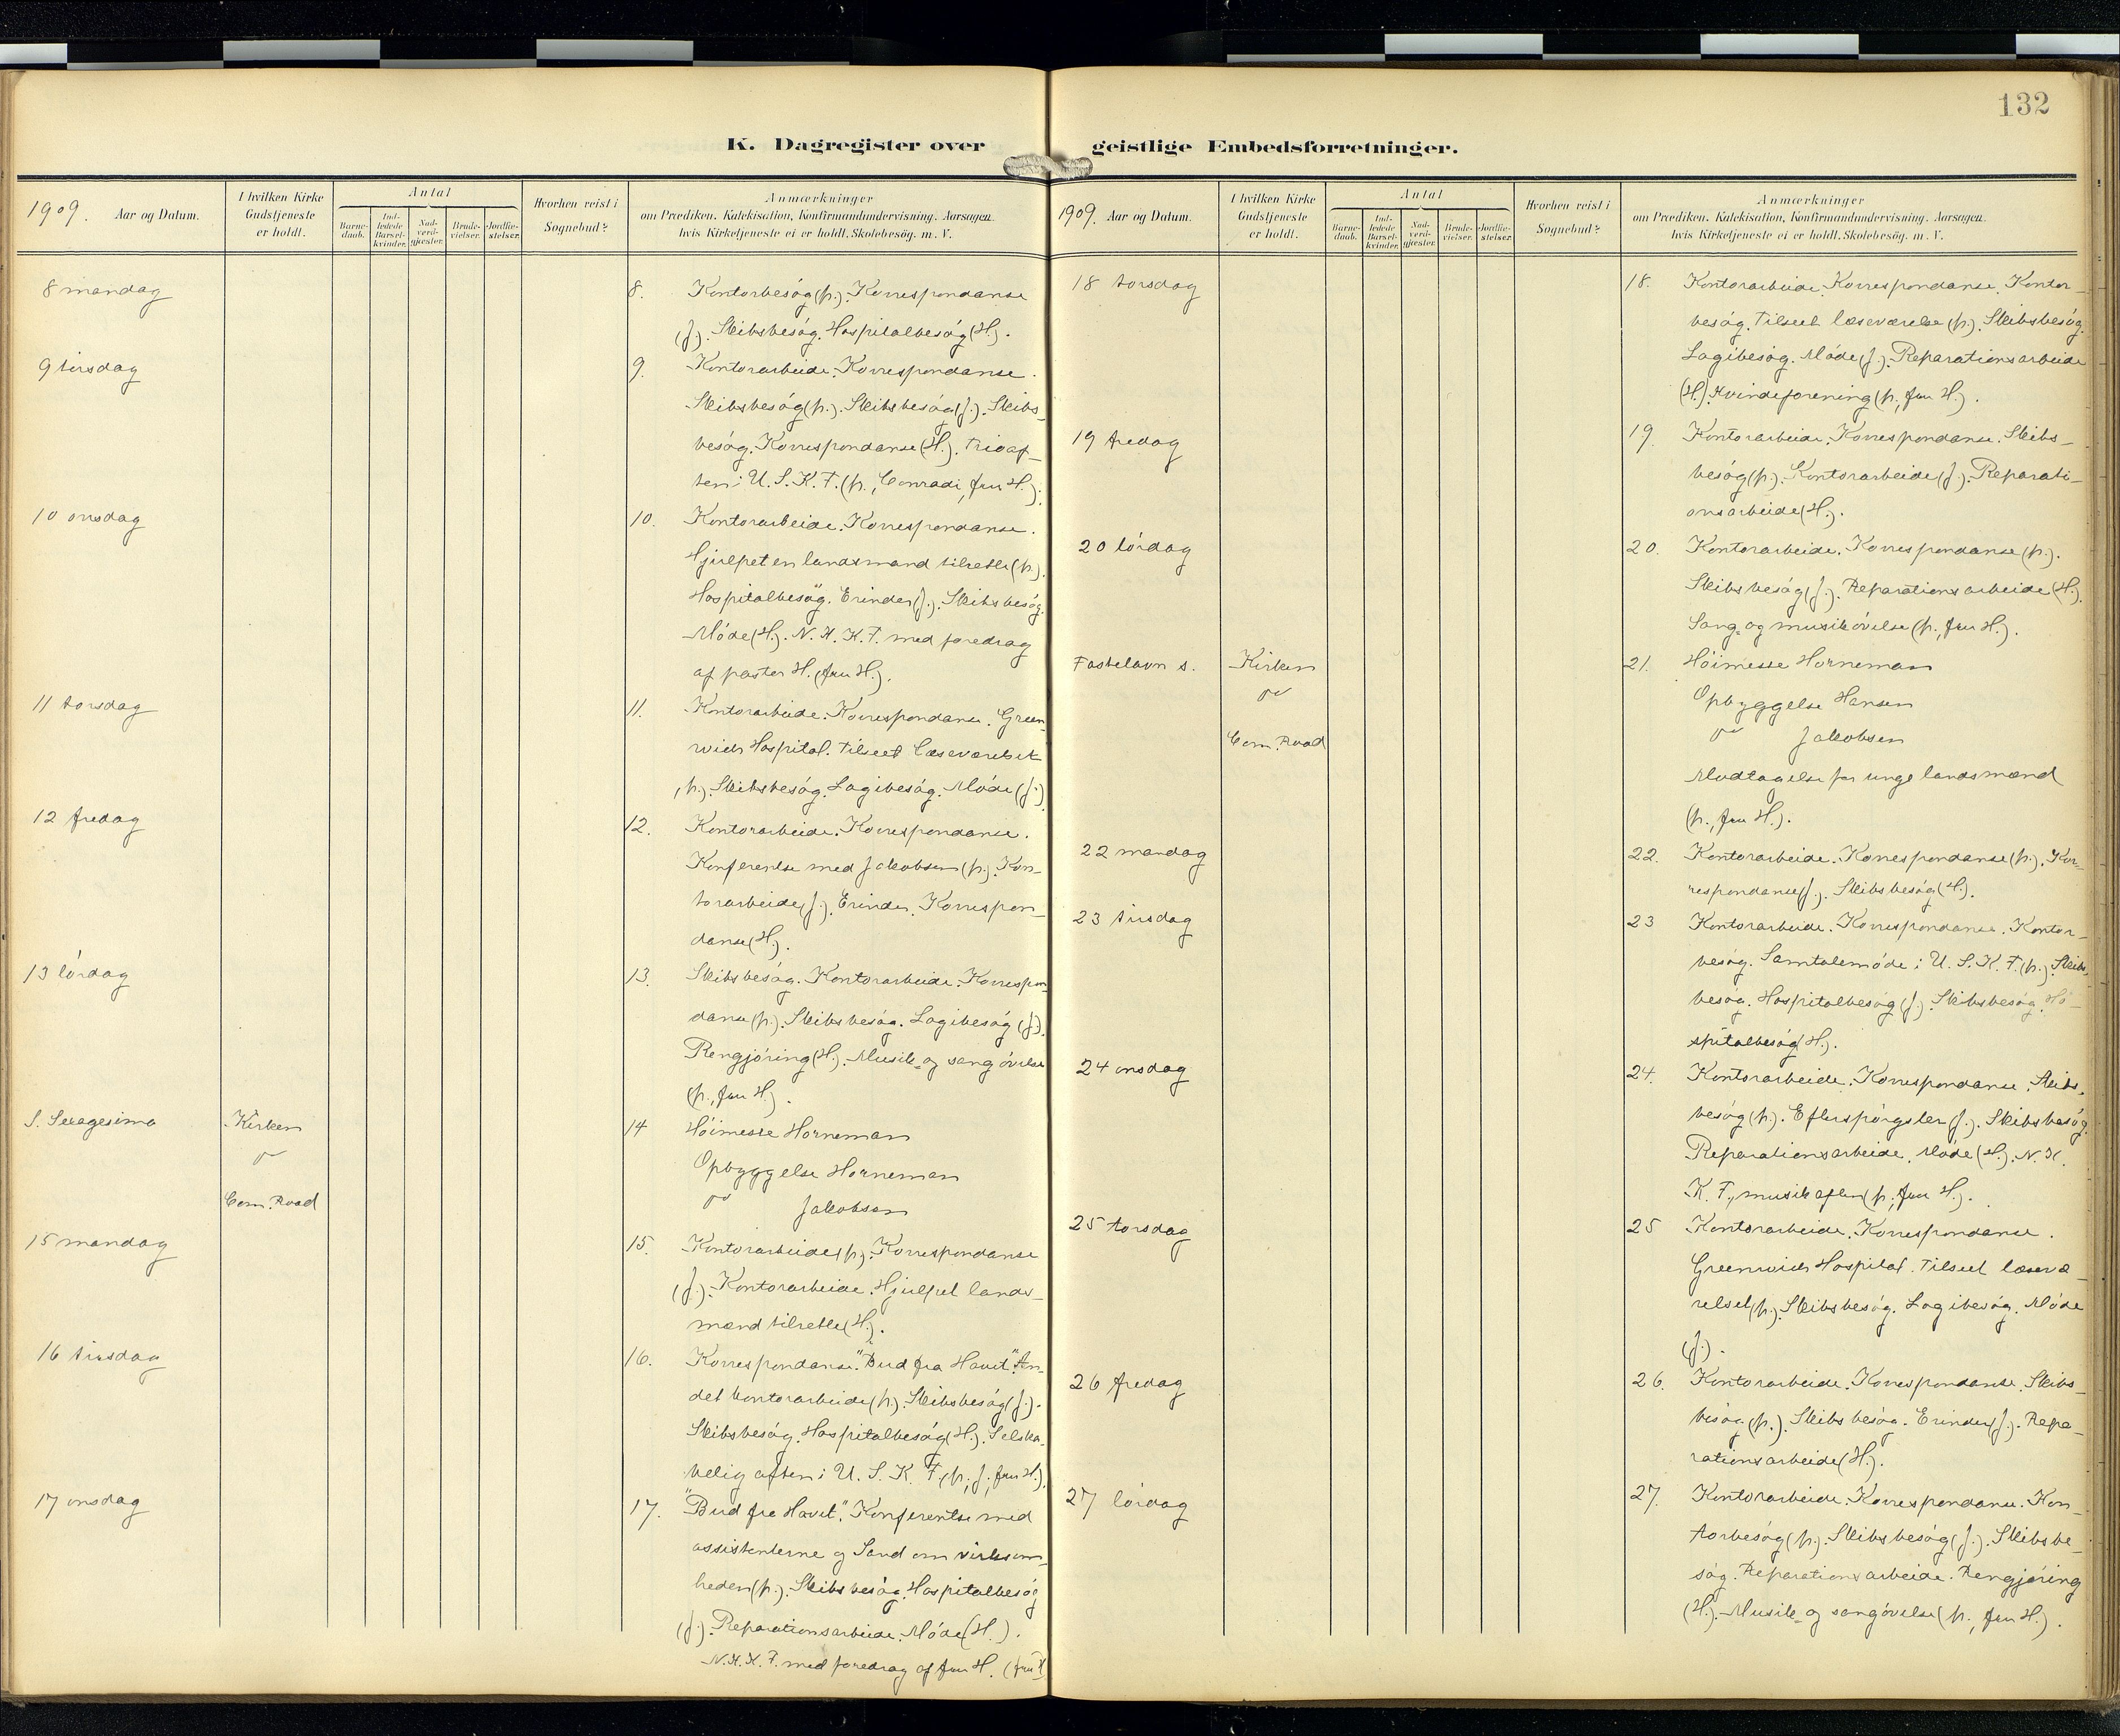 132
K. Dagregister over geistlige Embedsforretninger.
1909. Aar og Datum.
I hvilken Kirke Gudstjeneste er holdt.
Antal
Barnedaab.
Indledede Barselkvinder.
Nadverdgjæster.
Brudevielser.
Jordfæstelser.
Hvorhen reist i Sognebud?
Anmærkninger
om Prædiken. Katekisation, Konfirmandundervisning. Aarsagen
hvis Kirketjeneste ei er holdt. Skolebesøg. m. V.
8 mandag
8. Kontorbesøg (p.). Korrespondanse
(J.). Skibsbesøg. Hospitalbesøg (H.).
9 tirsdag
9. Kontorarbeide. Korrespondanse.
Skibsbesøg (p.). Skibsbesøg (J.). Skibs-
besøg. Korrespondanse (H.). Trioaf-
ten i U. S. K. F. (p., Conradi, fru H.).
10 onsdag
10. Kontorarbeide. Korrespondanse.
Hjulpet en landsmand tilrette (p.).
Hospitalbesøg. Erinder (J.). Skibsbesøg.
Møde (H.). N. K. K. F. med foredrag
af pastor H. (fru H.).
11 torsdag
11. Kontorarbeide. Korrespondanse. Green-
wich Hospital. Tilseet læseværelset
(p.). Skibsbesøg. Logibesøg. Møde (J.).
12 fredag
12. Kontorarbeide. Korrespondanse.
Konferentse med Jakobsen (p.). Kon-
torarbeide (J.). Erinder. Korrespon-
danse (H.).
13 lørdag
13. Skibsbesøg. Kontorarbeide. Korrespon-
danse (p.). Skibsbesøg. Logibesøg (J.).
Rengjøring (H.). Musik- og sangøvelse
(p., fru H.).
S. Sexagesima
Kirken
Com. Road
14 Høimesse Horneman
Opbyggelse Horneman
Jakobsen
15 mandag
15. Kontorarbeide (p.). Korrespondanse
(J.). Kontorarbeide. Hjulpet lands-
mænd tilrette (H.).
16 tirsdag
16. Korrespondanse. "Bud fra Havet". An-
det kontorarbeide (p.). Skibsbesøg (J.).
Skibsbesøg. Hospitalbesøg (H.). Selska-
belig aften i U. S. K. F. (p., J., fru H.).
17 onsdag
17. "Bud fra Havet". Konferentse med
assistenterne og Sand om virksom-
heden (p.). Skibsbesøg. Hospitalbesøg
(J.). Reparationsarbeide. Møde (H.).
N. K. K. F. med foredrag af fru H. (fru H
1909. Aar og Datum.
I hvilken Kirke Gudstjeneste er holdt.
Antal
Barnedaab.
Indledede Barselkvinder.
Nadverdgjæster.
Brudevielser.
Jordfæstelser.
Hvorhen reist i Sognebud?
Anmærkninger
om Prædiken. Katekisation, Konfirmandundervisning. Aarsagen
hvis Kirketjeneste ei er holdt. Skolebesøg. m. V.
18 torsdag
18. Kontorarbeide. Korrespondanse. Kontor-
besøg. Tilseet læseværelse (p.). Skibsbesøg.
Logibesøg. Møde (J.). Reparationsarbeide
(H.). Kvindeforening (p., fru H.).
19 fredag
19. Kontorarbeide. Korrespondanse. Skibs-
besøg (p.). Kontorarbeide (J.). Reparati-
onsarbeide (H.).
20 lørdag
20. Kontorarbeide. Korrespondanse (p.).
Skibsbesøg (J.). Reparationsarbeide (H.).
Sang- og musikøvelse (p., fru H.).
Fastelavn s.
Kirken
Com. Road
21. Høimesse Horneman
Opbyggelse Hansen
Jakobsen
Modtagelse for unge landsmænd
(p., fru H.).
22 mandag
22. Kontorarbeide. Korrespondanse (p.). Kor-
respondanse (J.). Skibsbesøg (H.).
23 tirsdag
23 Kontorarbeide. Korrespondanse. Kontor-
besøg. Samtalemøde i U. S. K. F. (p.). Skibs-
besøg. Hospitalbesøg (J.). Skibsbesøg. Ho-
spitalbesøg (H.).
24 onsdag
24. Kontorarbeide. Korrespondanse. Skibs-
besøg (p.). Efterspørgsler (J.). Skibsbesøg.
Reparationsarbeide. Møde (H.). N. K.
K. F., musikaften (p., fru H.).
25 torsdag
25 Kontorarbeide. Korrespondanse.
Greenwich Hospital. Tilseet læsevæ-
relset (p.). Skibsbesøg. Logibesøg. Møde
(J.).
26 fredag
26. Kontorarbeide. Korrespondanse. Skibs-
besøg (p.). Skibsbesøg. Erinder (J.). Repa-
rationsarbeide (H.).
27 lørdag
27. Kontorarbeide. Korrespondanse. Kon-
torbesøg (p.). Skibsbesøg (J.). Skibsbe-
søg. Reparationsarbeide. Rengjøring
(H.). Musik- og sangøvelse (p., fru H.).